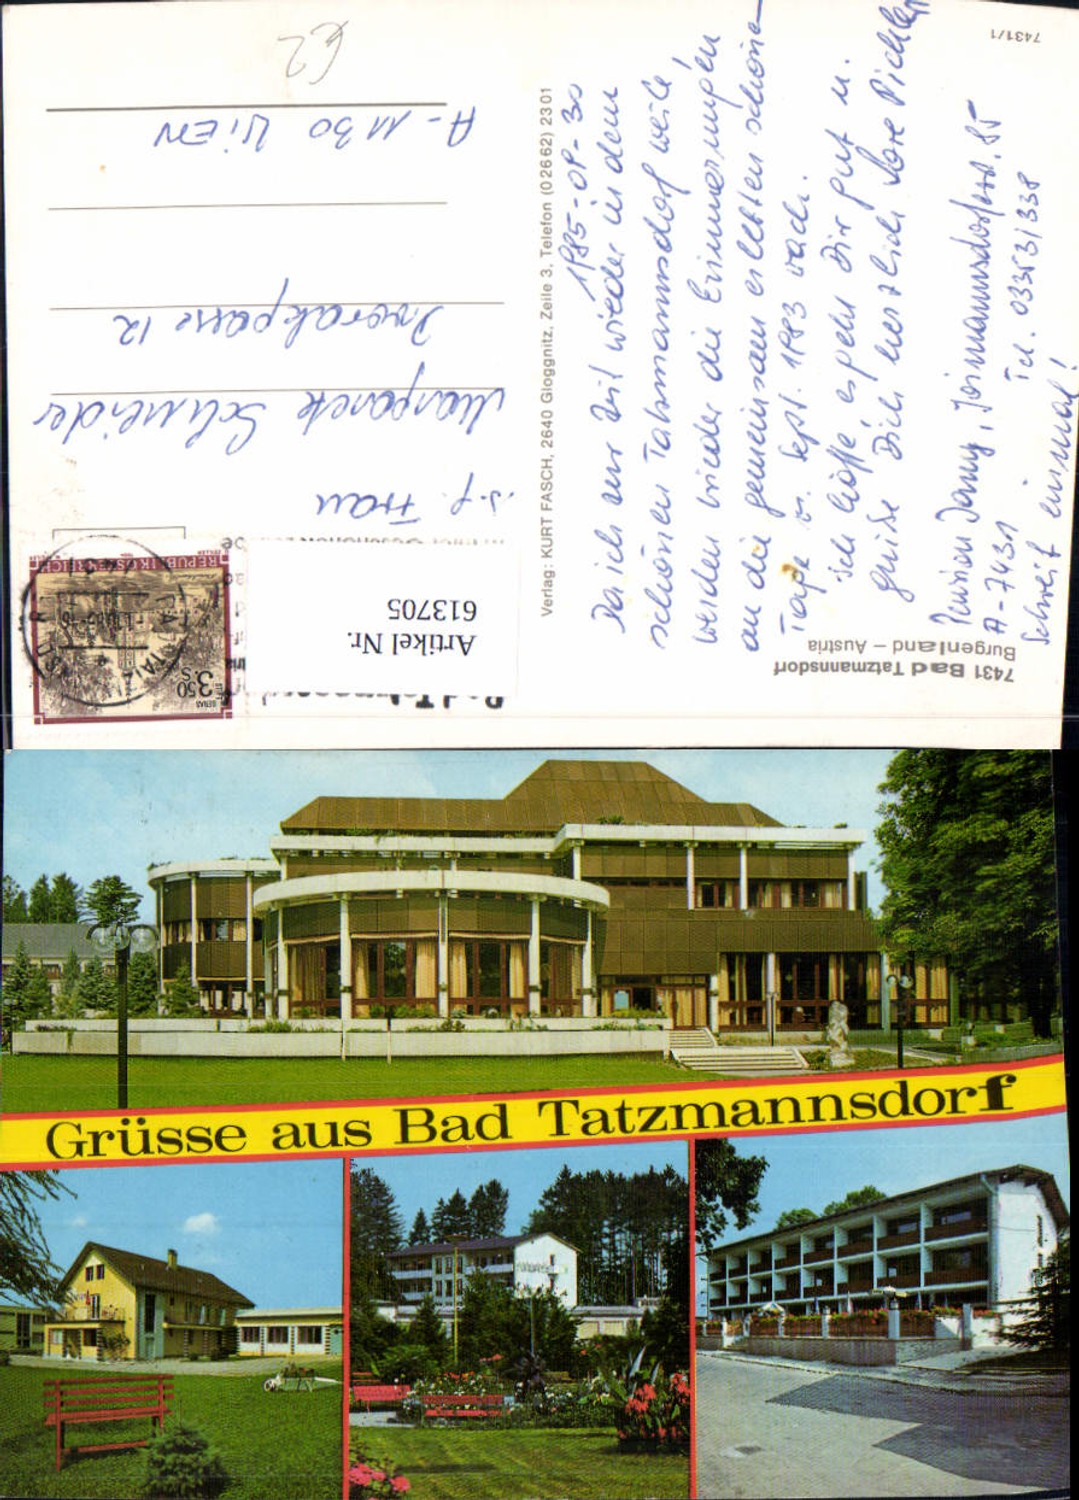 7431/1
€2
1985-09-30
Da ich zur Zeit wieder in dem
schönen Tatzmannsdorf weile,
werden wieder die Erinnerungen
an die gemeinsam erlebten schönen
Tage v. Sept. 1983 wach.
Ich hoffe, es geht Dir gut u.
grüße Dich herzlich Lore Pichler
Pension Jany, Jormannsdorferstr. 85
A-7431 Tel. 03353/338
Schreib einmal!
7431 Bad Tatzmannsdorf
Burgenland – Austria
Verlag: KURT FASCH, 2640 Gloggnitz, Zeile 3, Telefon (02662) 2301
s.g. Frau
Margarete Schneider
Dvorakgasse 12
A-1130 WiEN
REPUBLIK ÖSTERREICH
S 3.50
Artikel Nr.
613705
Grüsse aus Bad Tatzmannsdorf